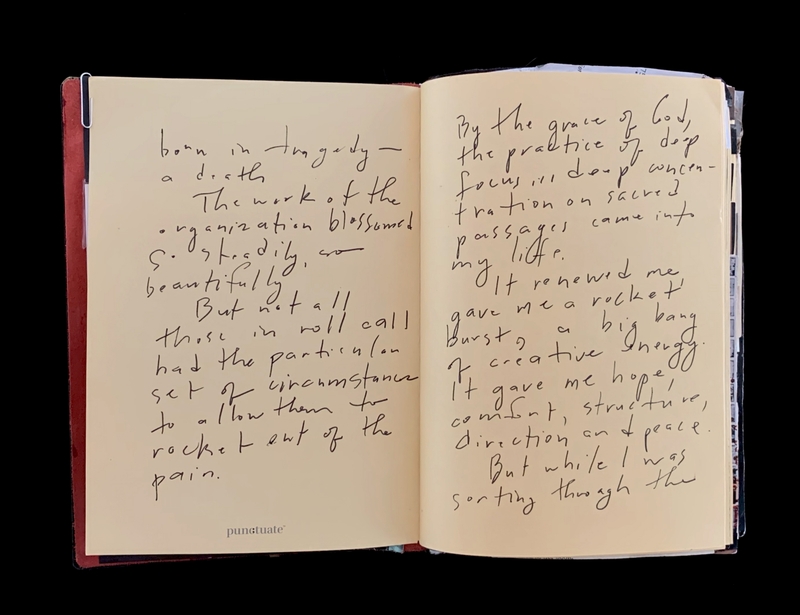 born in tragedy—
a death
The work of the
organization blossomed
so steadily, so
beautifully
But not all
those in roll call
had the particular
set of circumstances
to allow them to
rocket out of the
pain.
punctuate
By the grace of God,
the practice of deep
focus in deep concen-
tration on sacred
passages came into
my life.
It renewed me
gave me a rocket
burst, a big bang
of creative energy.
It gave me hope,
comfort, structure,
direction and peace.
But while I was
sorting through the